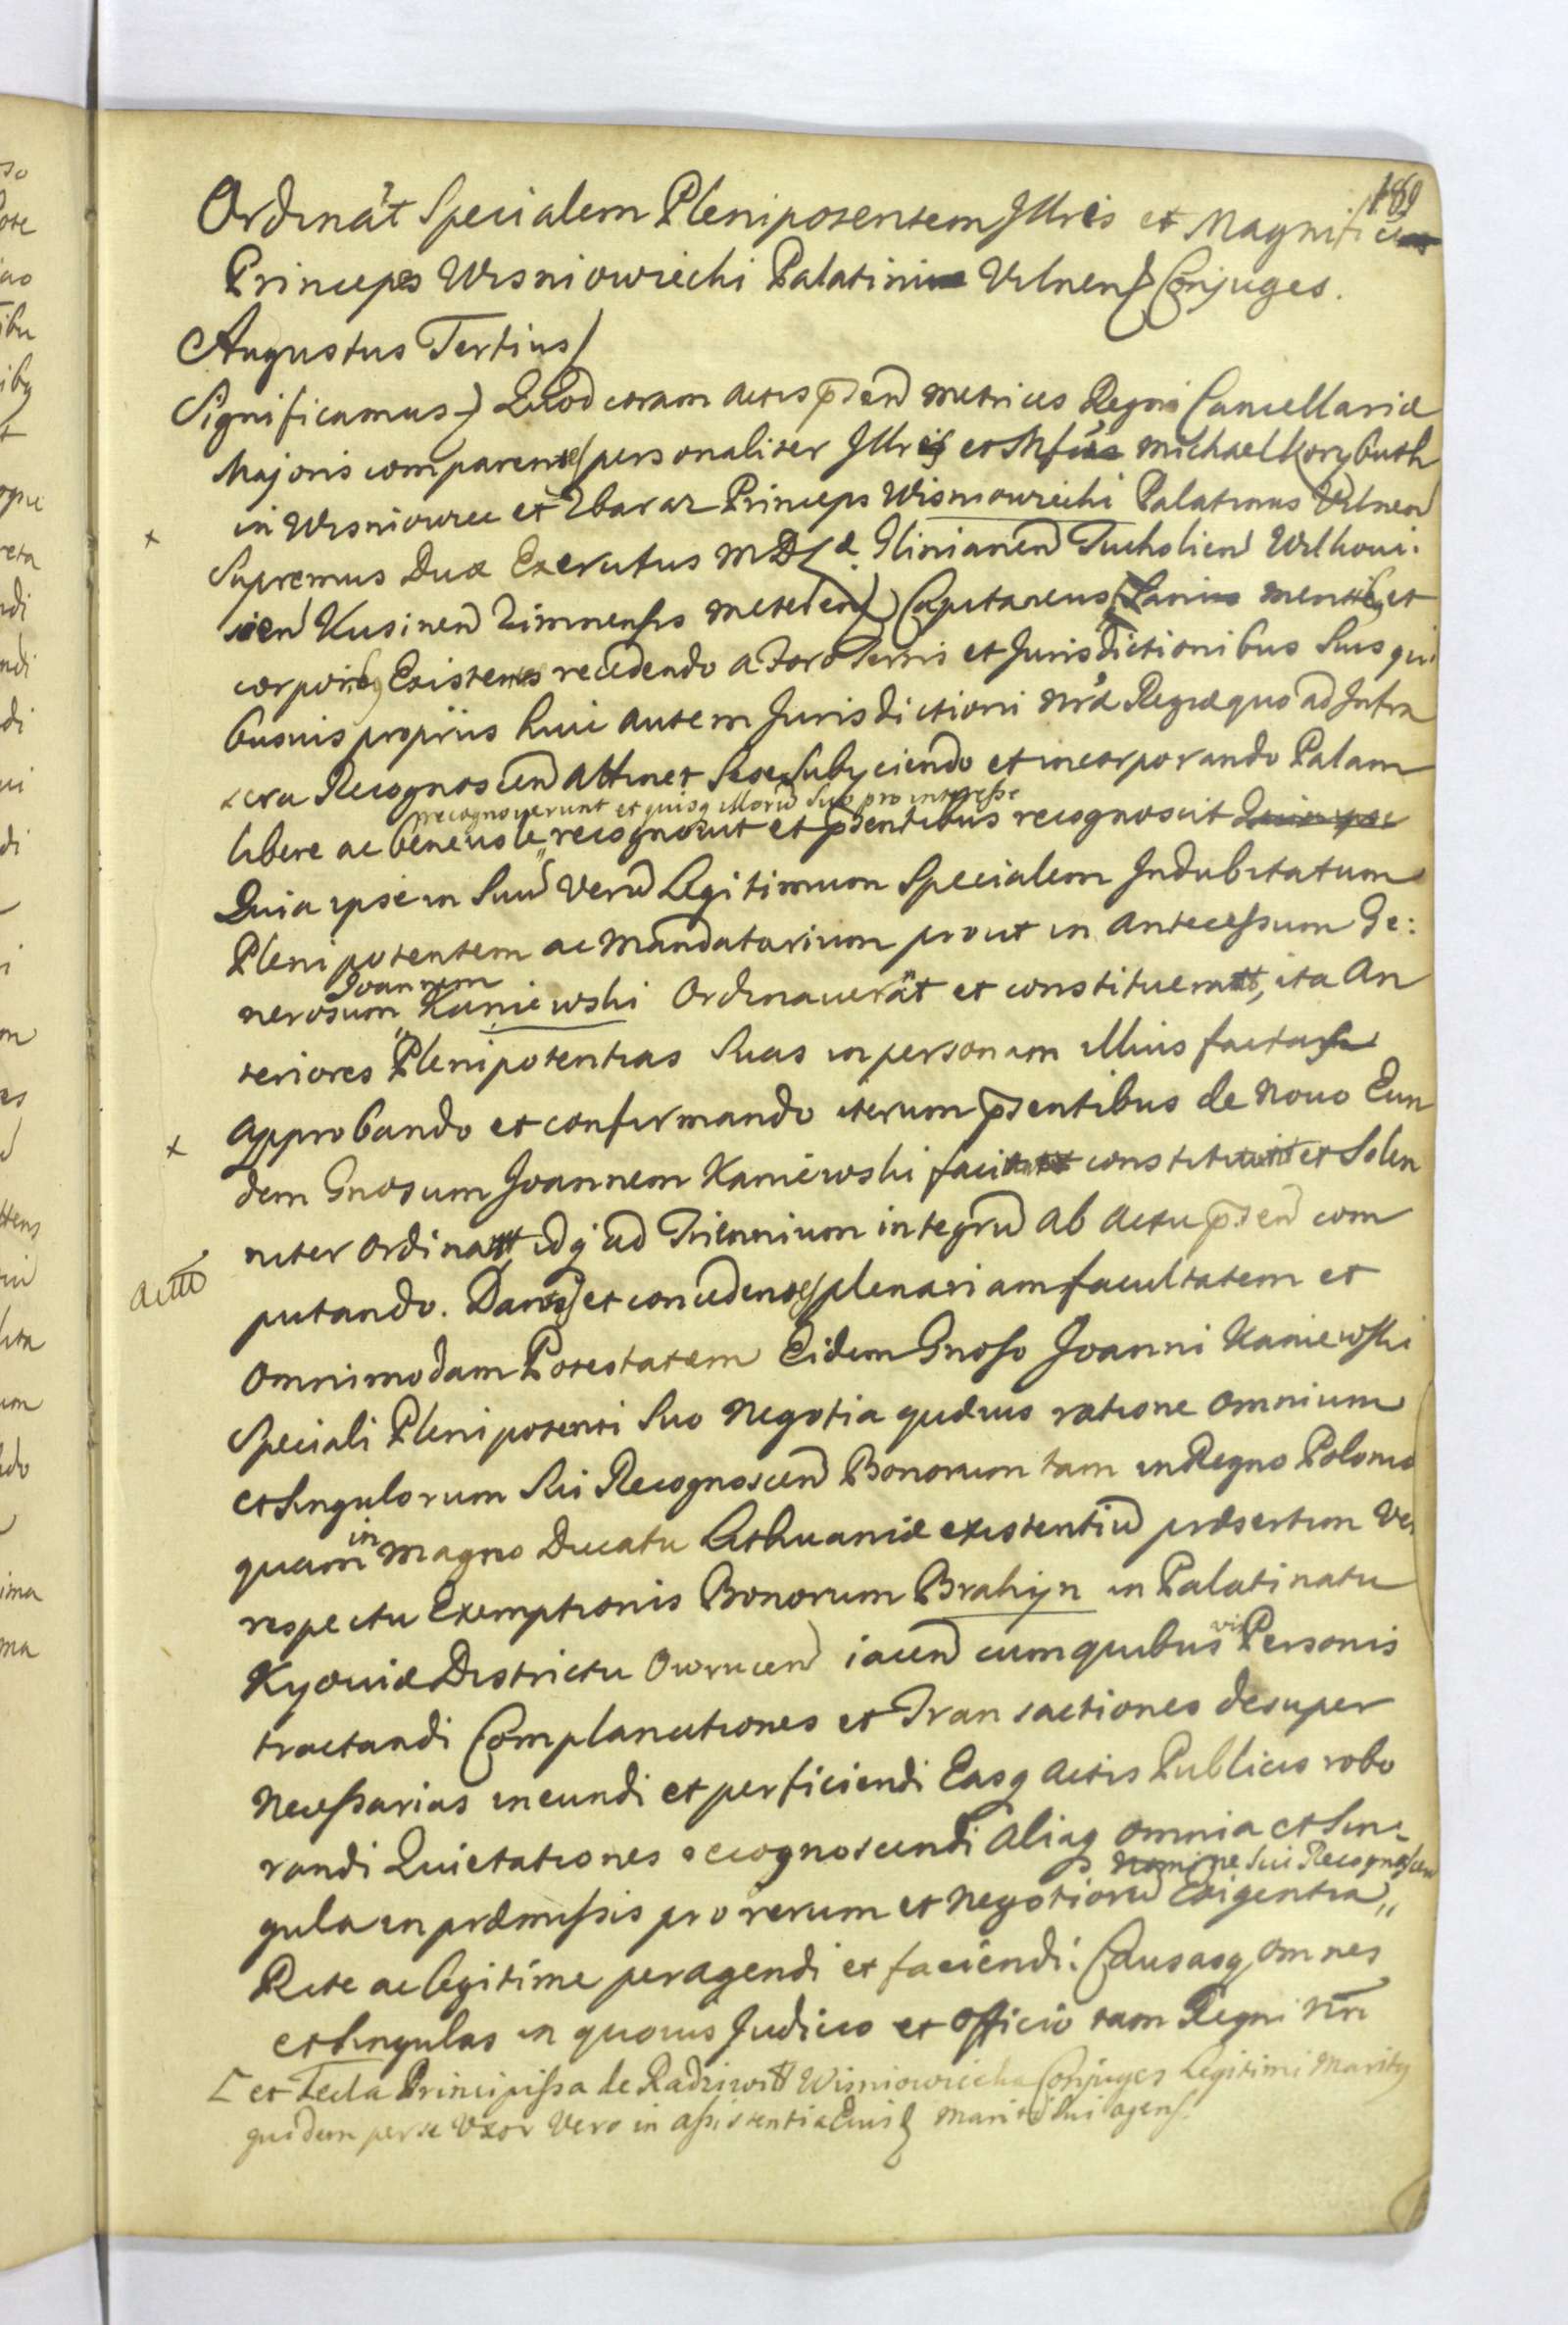 189
Ordinãt Specialem Plenipotentem Illris et Magnifici
Princeps Wisniowiechi Palatini Vilnens Conjuges.
Augustus Tertius
Significamus Quod coram actis p̄send metrices Regni Cancellariæ
Majoris comparentes personaliter Illris et Mfus Michael Korybuth
in Wisniowiec et Zbaraz Princeps Wisniowiechi Palatinus Vilnen
Supremus Dux Exercitus MDL. Glinianen Tucholien Wilkowi:
scien Kusinen Zimnensis metelen Capitaneus Sani mentibq et
corporibq Existentes recedendo a Foro Terris et Jurisdictionibus Suis qui
busvis propriis huic autem Jurisdictioni nrã Regiæ quo ad Infra
scra Recognoscen attinet Sese Subyciendo et incorporando Palam
recognoverunt et quisq illorũ Suo pro interesse
libere ac benevole recognovit et p̄sentibus recognoscit Quia ipse
Quia ipse in Suũ Verũ Legitimum Specialem Indubitatum
Plenipotentem ac Mandatarium prout in antecessum Ge:
Joannem
nerosum Kaniewski Ordinauerãt et constituerant, ita An
teriores Plenipotentias Suas in personam illius factas
approbando et confirmando iterum p̄sentibus de Nouo Eun
dem Gnosum Joannem Kaniewski faciunt constituunt et Solen
niter ordinant idq ad Triennium integrũ ab actu p̄sen com
actũ
putando. Dantes et concedentes plenariam facultatem et
Omnimodam Potestatem Eidem Gnoso Joanni Kaniewski
Speciali Plenipotenti Suo Negotia quævis ratione omnium
et Singulorum Sui Recognoscen Bonorum tam in Regno Poloniæ
quam in Magno Ducatu Lithuaniæ existentiũ præsertim Ve
respectu Exemptionis Bonorum Brahyn in Palatinatu
Kyouiæ Districtu Owrucen iacen cum quibusvis Personis
tractandi Complanationes et Transactiones desuper
Necessarias ineundi et perficiendi Easq actis Publicis robo
randi Quietationes recognoscendi Aliaq omnia et Sin:
nomine Sui Recognoscen
gula in præmissis pro rerum et Negotiorũ Exigentia
Rite ac legitime peragendi et faciendi: Causasq omnes
et Singulas in quovis Judicio et Officio tam Regni nr̃i
et Tecla Principissa de Radziwiłł Wisniowiecka Conjuges Legitimi Maritq
quidem per se Uxor Vero in assistentia Eiusd Mariti Sui agens